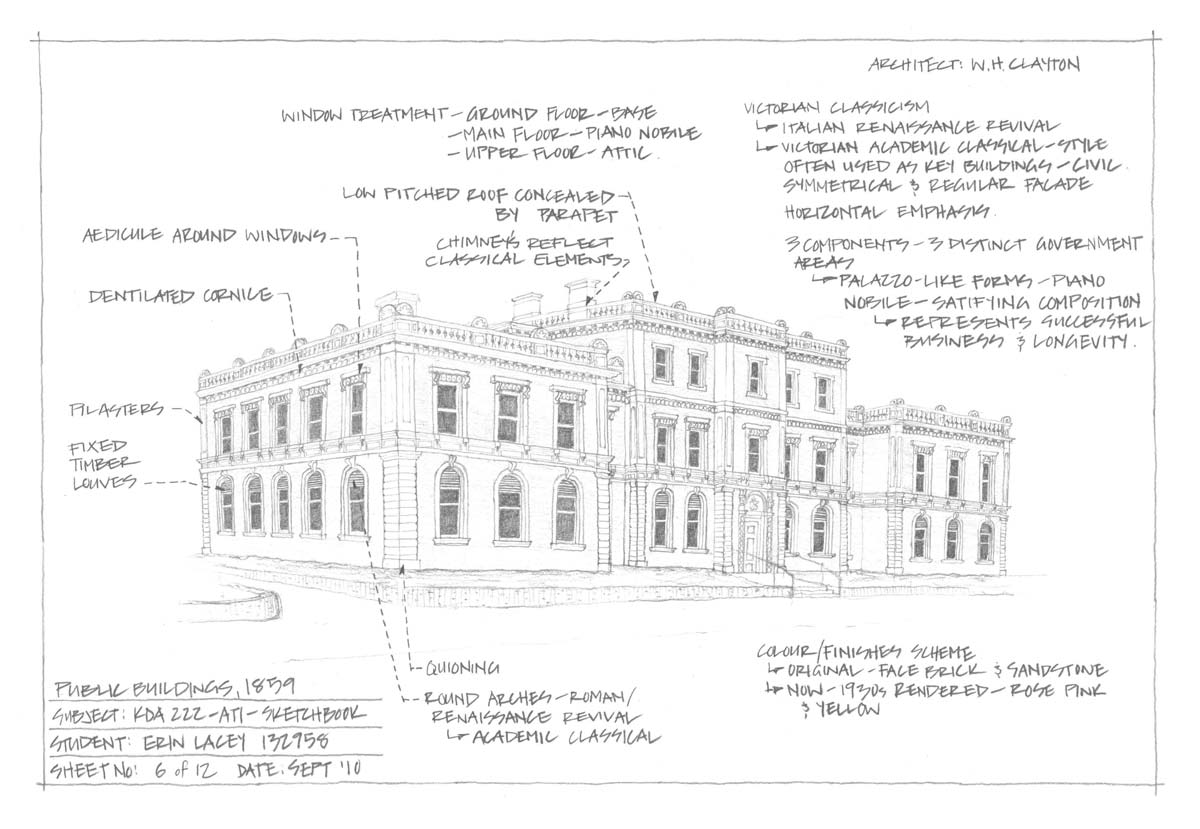 ARCHITECT: W.H. CLAYTON
WINDOW TREATMENT - GROUND FLOOR - BASE
- MAIN FLOOR - PIANO NOBILE
- UPPER FLOOR - ATTIC.
VICTORIAN CLASSICISM
↳ ITALIAN RENAISSANCE REVIVAL
↳ VICTORIAN ACADEMIC CLASSICAL - STYLE
OFTEN USED AS KEY BUILDINGS - CIVIC.
SYMMETRICAL & REGULAR FACADE
HORIZONTAL EMPHASIS.
3 COMPONENTS - 3 DISTINCT GOVERNMENT
AREAS
↳ PALAZZO-LIKE FORMS - PIANO
NOBILE - SATIFYING COMPOSITION
↳ REPRESENTS SUCCESSFUL
BUSINESS & LONGEVITY.
LOW PITCHED ROOF CONCEALED
BY PARAPET
CHIMNEY'S REFLECT
CLASSICAL ELEMENTS
AEDICULE AROUND WINDOWS
DENTILATED CORNICE
PILASTERS
FIXED
TIMBER
LOUVES
QUIONING
ROUND ARCHES - ROMAN/
RENAISSANCE REVIVAL
↳ ACADEMIC CLASSICAL
COLOUR/FINISHES SCHEME
↳ ORIGINAL - FACE BRICK & SANDSTONE
↳ NOW - 1930s RENDERED - ROSE PINK
& YELLOW
PUBLIC BUILDINGS, 1859
SUBJECT: KDA 222 - AT1 - SKETCHBOOK
STUDENT: ERIN LACEY 132958
SHEET No: 6 of 12 DATE. SEPT '10